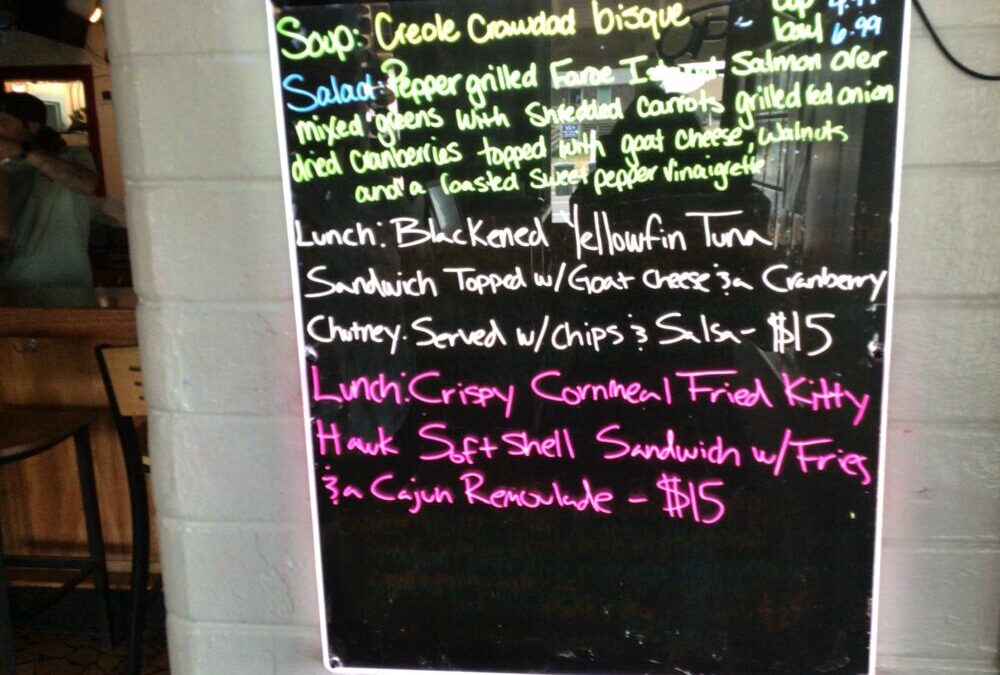 cup 4.99
Soup: Creole Crawdad bisque
bowl 6.99
Salad: Pepper grilled Faroe Island Salmon over
mixed greens with Shredded carrots grilled red onion
dried cranberries topped with goat cheese, walnuts
and a roasted sweet pepper vinaigrette
Lunch: Blackened Yellowfin Tuna
Sandwich Topped w/Goat cheese & a Cranberry
Chutney. Served w/Chips & Salsa - $15
Lunch: Crispy Cornmeal Fried Kitty
Hawk Soft Shell Sandwich w/Fries
& a Cajun Remoulade - $15